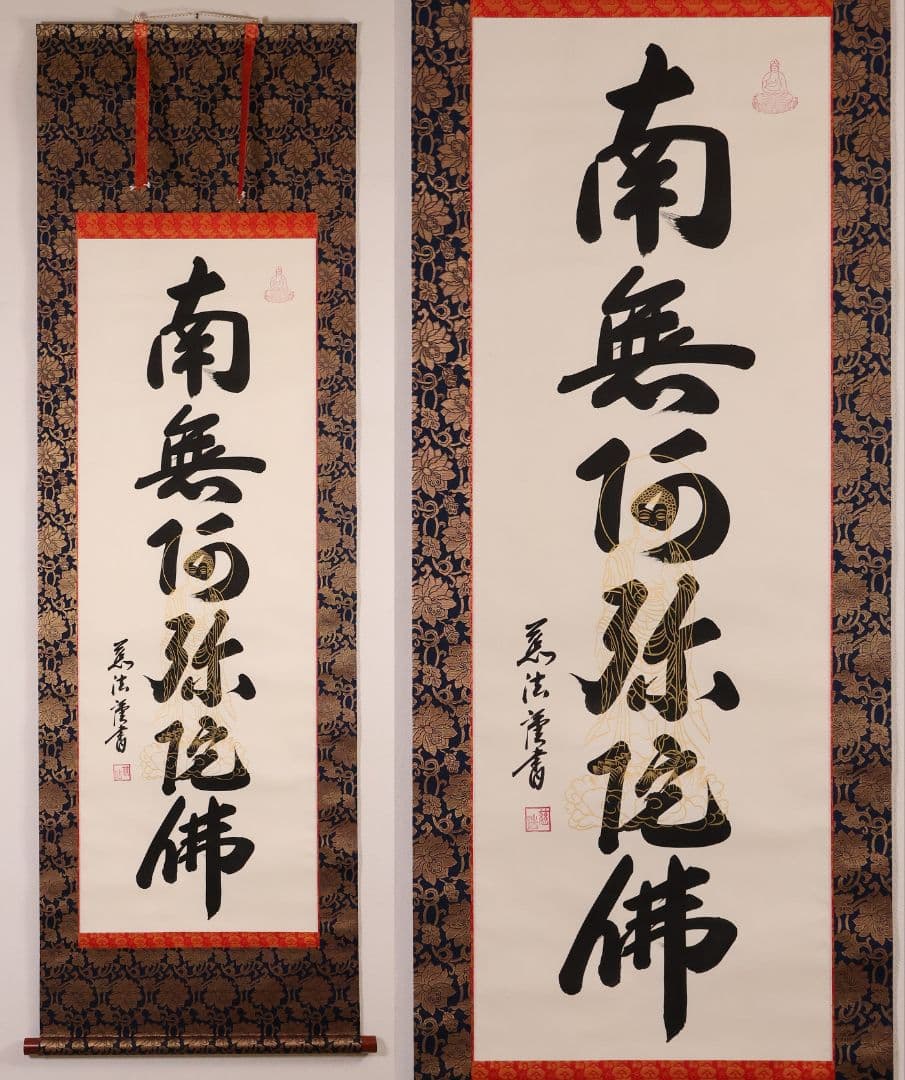 南無阿弥陀佛
慈法謹書
南無阿弥陀佛
慈法謹書